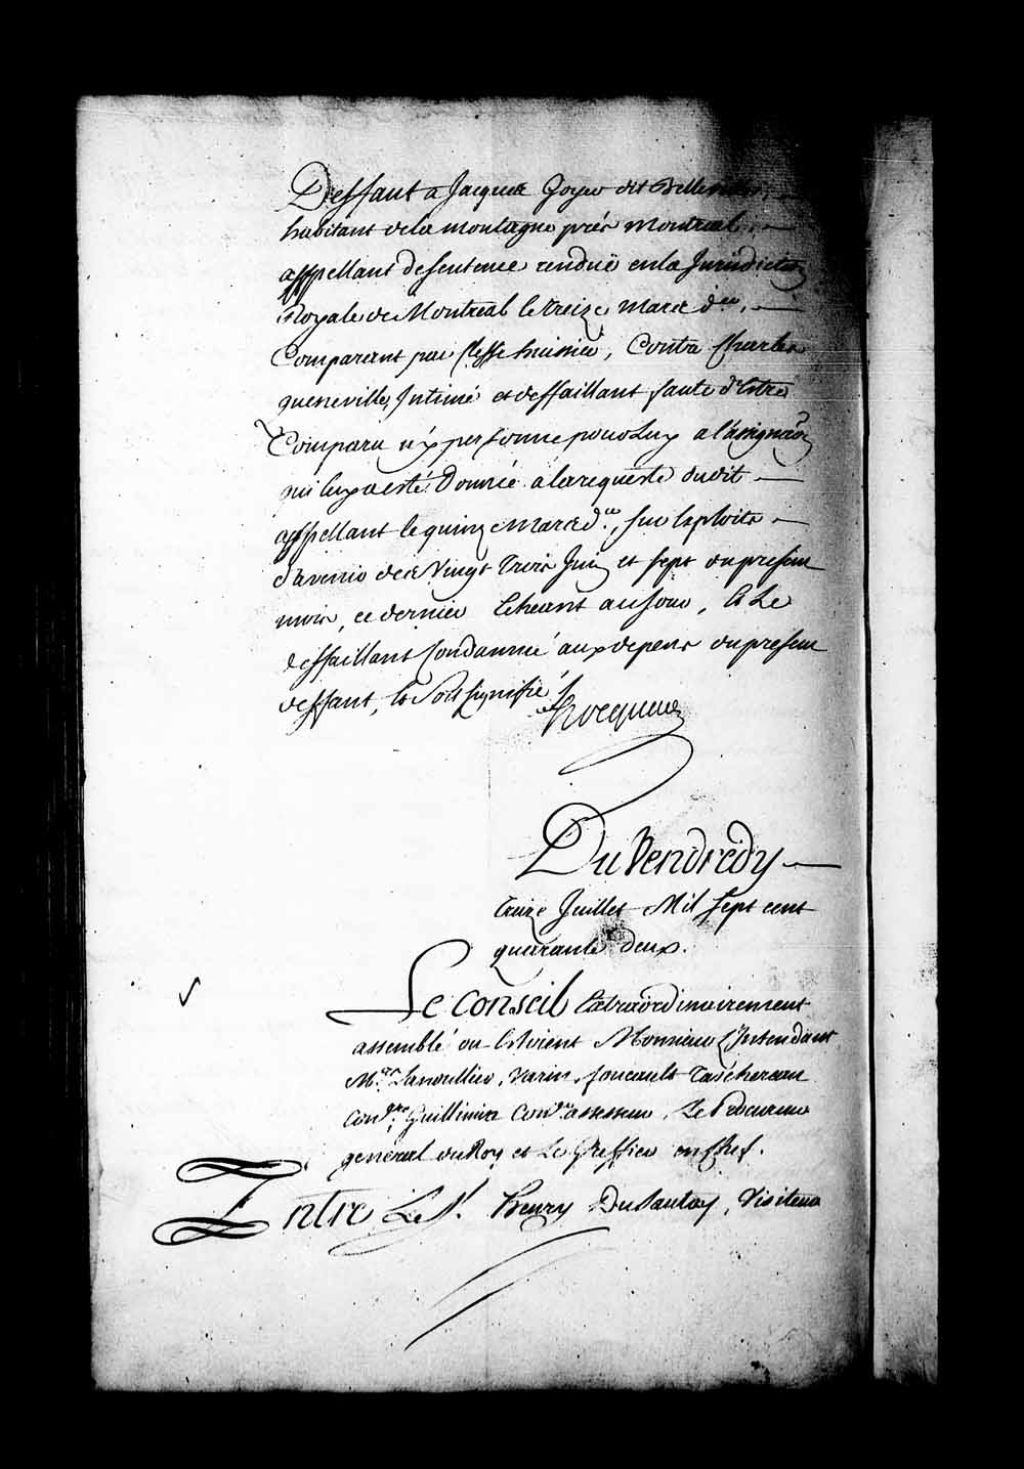 Deffaut a Jacques Goyer dit Belle
habitant de la montagne prés Montreal,
appellant de sentence renduë en la Jurisdiction
Royale de Montreal le treize Mars d.er,
Comparant par Clesse huissier, Contre Charles
queneville, Intimé et deffaillant faute d'Estre
Comparu ny personne pour Luy a l'assignaôn
qui luy a esté Donnée a la requeste dudit
appellant le quinze Mars d.er, sur Exploits
d'avenir des Vingt Trois Juin et sept du present
mois, ce dernier Echeant au Jour, Et Le
deffaillant Condamné aux depens du present
deffaut, Et Soit signifié
Hocquart
Du Vendredy
treize Juillet Mil sept cent
quarante deux.
Le Conseil Extraordinairement
assemblé ou Estoient Monsieur L'Intendant
M.rs Lanoullier, Varin, foucault Taschereau
Con.ers Guillimin Con.er assesseur, Le Procureur
general du Roy et Le Greffier en Chef.
Entre Le S.r Henry DuSautoy, Visiteur